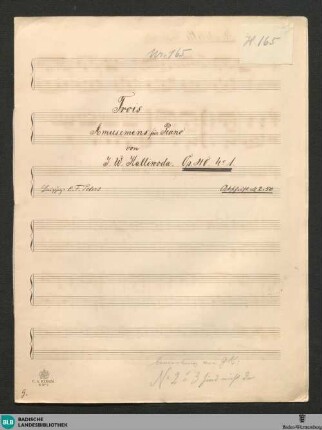 No 165
H 165
Trois
Amusemens für Piano
von
J. W. Kalliwoda. Op. 118. No 1.
Leipzig C. F. Peters
No 2 & 3 sind nicht da
BLB BADISCHE
LANDESBIBLIOTHEK
Baden-Württemberg